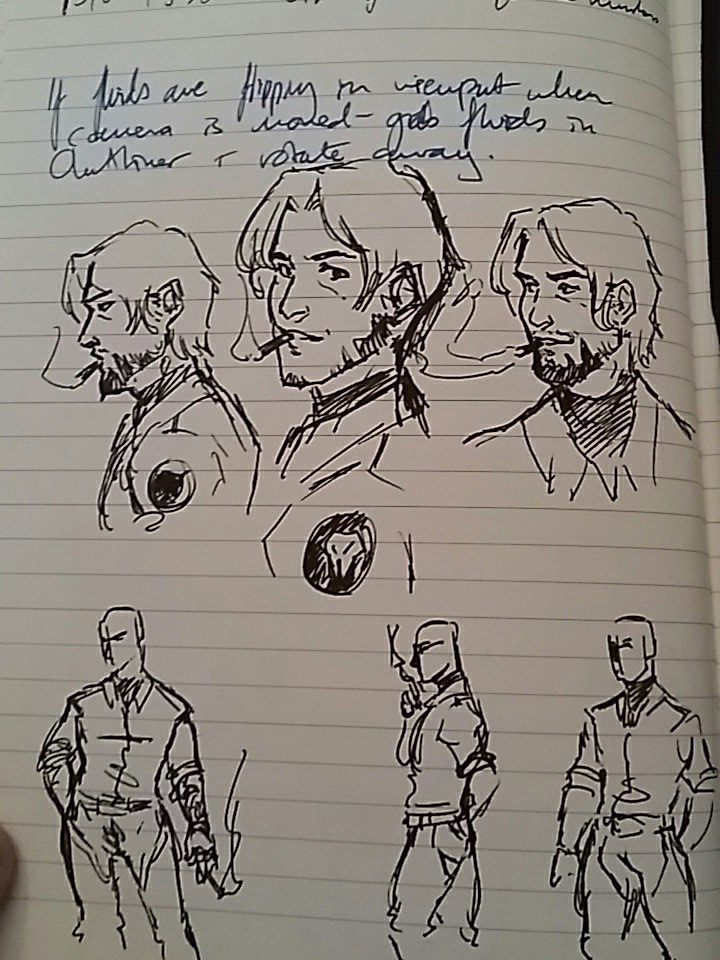 If fluids are flipping in viewport when
camera is moved - grab fluids in
Outliner + rotate away.